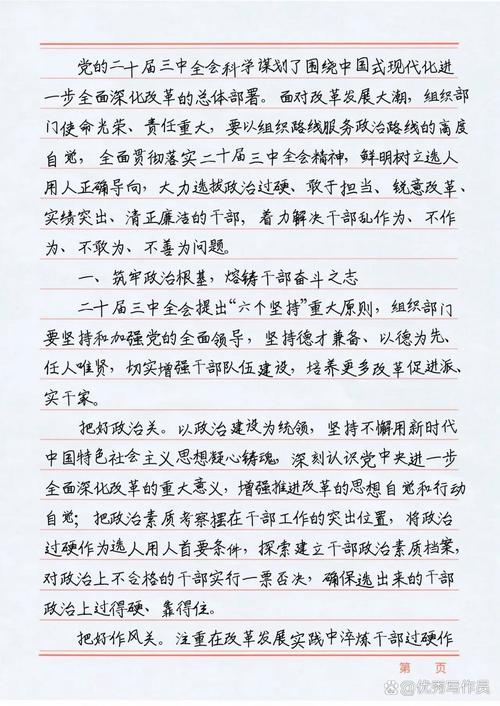 党的二十届三中全会科学谋划了围绕中国式现代化进
一步全面深化改革的总体部署。面对改革发展大潮,组织部
门使命光荣、责任重大,要以组织路线服务政治路线的高度
自觉,全面贯彻落实二十届三中全会精神,鲜明树立选人
用人正确导向,大力选拔政治过硬、敢于担当、锐意改革、
实绩突出、清正廉洁的干部,着力解决干部乱作为、不作
为、不敢为、不善为问题。
一、筑牢政治根基,熔铸干部奋斗之志
二十届三中全会提出“六个坚持”重大原则,组织部门
要坚持和加强党的全面领导,坚持德才兼备、以德为先、
任人唯贤,切实增强干部队伍建设,培养更多改革促进派、
实干家。
把好政治关。以政治建设为统领,坚持不懈用新时代
中国特色社会主义思想凝心铸魂,深刻认识党中央进一步
全面深化改革的重大意义,增强推进改革的思想自觉和行动
自觉;把政治素质考察摆在干部工作的突出位置,将政治
过硬作为选人用人首要条件,探索建立干部政治素质档案,
对政治上不合格的干部实行一票否决,确保选出来的干部
政治上过得硬、靠得住。
把好作风关。注重在改革发展实践中淬炼干部过硬作
第 页
@优秀写作员